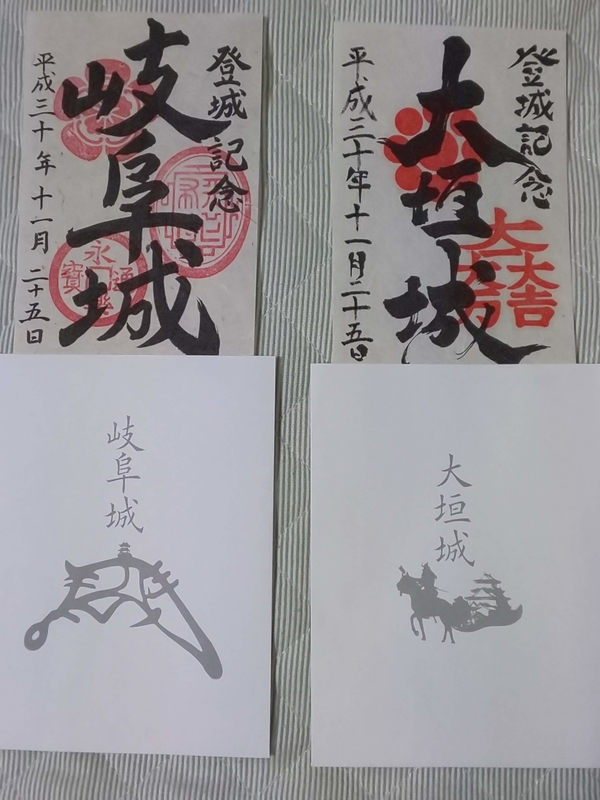 登城記念
岐阜城
平成三十年十一月二十五日
登城記念
大垣城
平成三十年十一月二十五日
大吉
岐阜城
大垣城